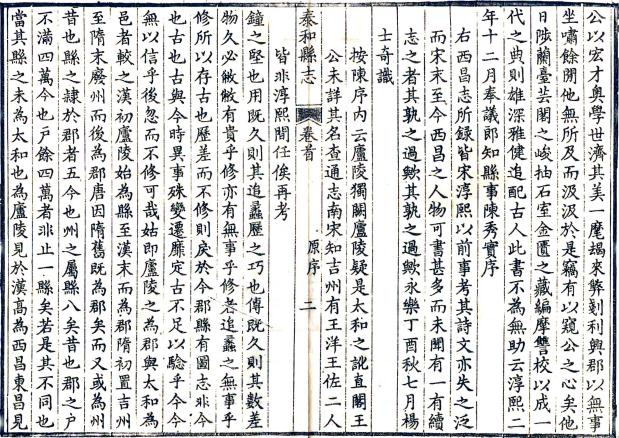 公以宏才奧學世濟其美一麾朅來斃剗利興郡以無事
坐嘯餘閒他無所及而汲汲於是竊有以窺公之心矣他
日陟蘭臺芸閣之峻抽石室金匱之藏編摩讐校以成一
代之典則雄深雅健追配古人此書不為無助云淳熙二
年十二月奉議郎知縣事陳秀實序
右西昌志所錄皆宋淳熙以前事考其詩文亦失之泛
而宋末至今西昌之人物可書甚多而未聞有一有續
志之者其孰之過歟其孰之過歟永樂丁酉秋七月楊
士奇識
按陳序內云廬陵獨闕廬陵疑是太和之訛直閣王
公未詳其名查通志南宋知吉州有王洋王佐二人
泰和縣志
卷首
原序
二
皆非淳熙閒任俟再考
鐘之堅也用既久則其追蠡歷之巧也傳既久則其數差
物久必敝敝有貴乎修亦有無事乎修者追蠡之無事乎
修所以存古也歷差而不修則戾於今郡縣有圖志非今
也古也古與今時異事殊變遷靡定古不足以騐乎今今
無以信乎後忽而不修可哉姑即廬陵之為郡與太和為
邑者較之漢初廬陵始為縣至漢末而為郡隋初置吉州
至隋末廢州而後為郡唐因隋舊既為郡矣而又或為州
昔也縣之隸於郡者五今也州之屬縣八矣昔也郡之戶
不滿四萬今也戶餘四萬者非止一縣矣若是其不同也
當其縣之未為太和也為廬陵見於漢高為西昌東昌見